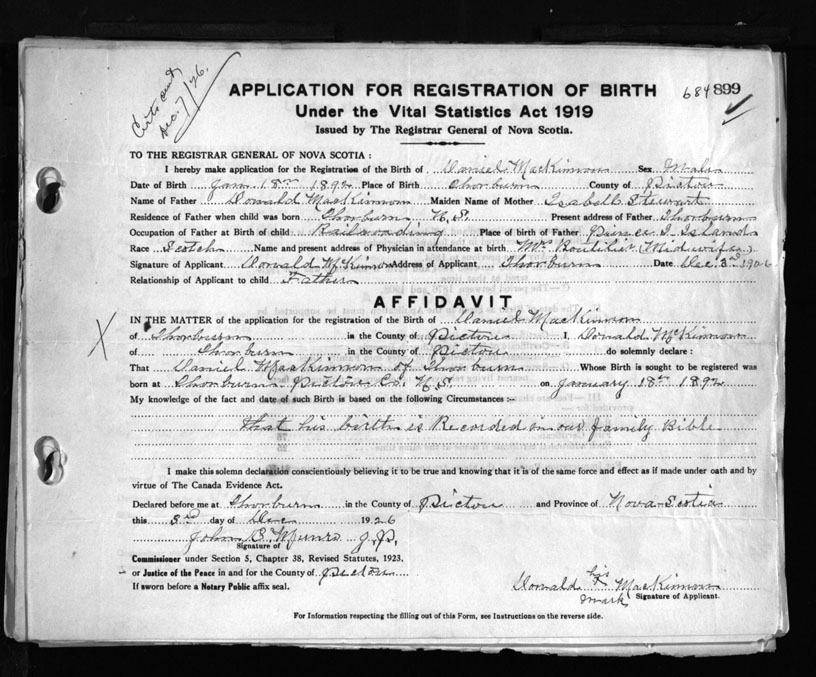 Certs sent
Dec. 7/26.
APPLICATION FOR REGISTRATION OF BIRTH
684 899
Under the Vital Statistics Act 1919
Issued by The Registrar General of Nova Scotia.
TO THE REGISTRAR GENERAL OF NOVA SCOTIA :
I hereby make application for the Registration of the Birth of Daniel MacKinnon Sex Male
Date of Birth Jan. 18th 1892 Place of Birth Thorburn County of Pictou
Name of Father Donald MacKinnon Maiden Name of Mother Isabell Stewart
Residence of Father when child was born Thorburn N.S. Present address of Father Thorburn
Occupation of Father at Birth of child Railroading Place of birth of Father Prince E Island
Race Scotch Name and present address of Physician in attendance at birth Mrs Routilier (Midwife)
Signature of Applicant Donald McKinnon Address of Applicant Thorburn Date Dec. 3rd 1926
Relationship of Applicant to child Father
AFFIDAVIT
IN THE MATTER of the application for the registration of the Birth of Daniel MacKinnon
X of Thorburn in the County of Pictou I, Donald McKinnon
of Thorburn in the County of Pictou do solemnly declare :
That Daniel MacKinnon of Thorburn Whose Birth is sought to be registered was
born at Thorburn Pictou Co. N.S. on January 18th 1892
My knowledge of the fact and date of such Birth is based on the following Circumstances :-
That his birth is Recorded in our family Bible
I make this solemn declaration conscientiously believing it to be true and knowing that it is of the same force and effect as if made under oath and by
virtue of The Canada Evidence Act.
Declared before me at Thorburn in the County of Pictou and Province of Nova Scotia
this 3rd day of Dec 1926
John C. Munro J.P.
Signature of
Commissioner under Section 5, Chapter 38, Revised Statutes, 1923,
or Justice of the Peace in and for the County of Pictou
If sworn before a Notary Public affix seal.
Donald his X mark MacKinnon
Signature of Applicant.
For Information respecting the filling out of this Form, see Instructions on the reverse side.